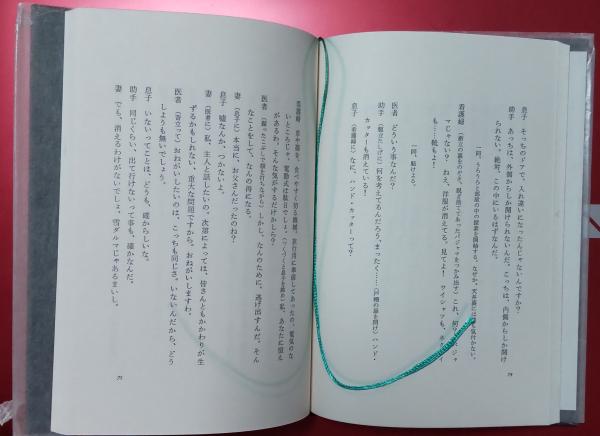 息子 そっちのドアで、入れ違いになったんじゃないんですか？
助手 あっちは、外側からしか開けられないんだ。こっちは、内側からしか開け
られない。絶対、この中にいるはずなんだ。
一同、うろうろと部屋の中の探索を開始する。なぜか、天井裏には
気付かない。
看護婦
マじゃない？ ねえ、洋服が消えてる。見てよ！ ワイシャツも、
も……靴もよ！
一同、駆けよる。
医者 どういう事なんだ？
助手 何を考えてるんだろう、まったく……（戸棚の扉を開け）ハンド・
カッターも消えている！
息子（看護婦に）なに、ハンド・カッターって？
74
看護婦 草や藁を、食べやすく切る機械。旅行用に準備してあったの。電気のな
いところじゃ、電動式は駄目でしょ。（つくづくと息子を眺め）私、あなたに憶え
があるわ。そんな気がするだけかしら？
医者 しかし、なんのために、逃げ出すんだ。そん
なことをして、なんの得になる。
妻（息子に）本当に、お父さんだったのね？
息子 嘘なんか、つかないよ。
妻（医者に）私、主人と話したいの。次第によっては、皆さんともかかわりが生
ずるかもしれない、重大な問題ですから。おねがいしますわ。
医者（苛立って）おねがいしたいのは、こっちも同じさ。いないんだから、どう
しようも無いでしょう。
息子 いないってことは、どうも、確からしいな。
助手 同じくらい、出て行けないって事も、確かなんだ。
妻 でも、消えるわけがないでしょ。雪ダルマじゃあるまいし。
75